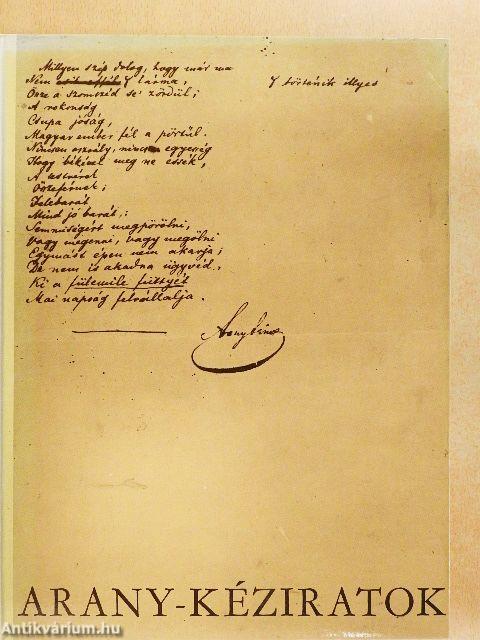 Millyen szép dolog, hogy már ma
Nem esik efféle lárma, történik illyes
Össze a szomszéd se' zördül;
A rokonság
Csupa jóság,
Magyar ember fél a pörtül.
Nincsen osztály, nincsen egyezség
Hogy bíkével meg ne essék,
A testvérek
Összeférnek;
Felebarát
Mind jó barát:
Semmiségért megpörölni,
Vagy megenni, vagy megölni
Egymást épen nem akarja;
De nem is akadna ügyvéd,
Ki a fülemile füttyét
Mai napság felvállalja.
Arany János
ARANY-KÉZIRATOK
Antikvárium.hu